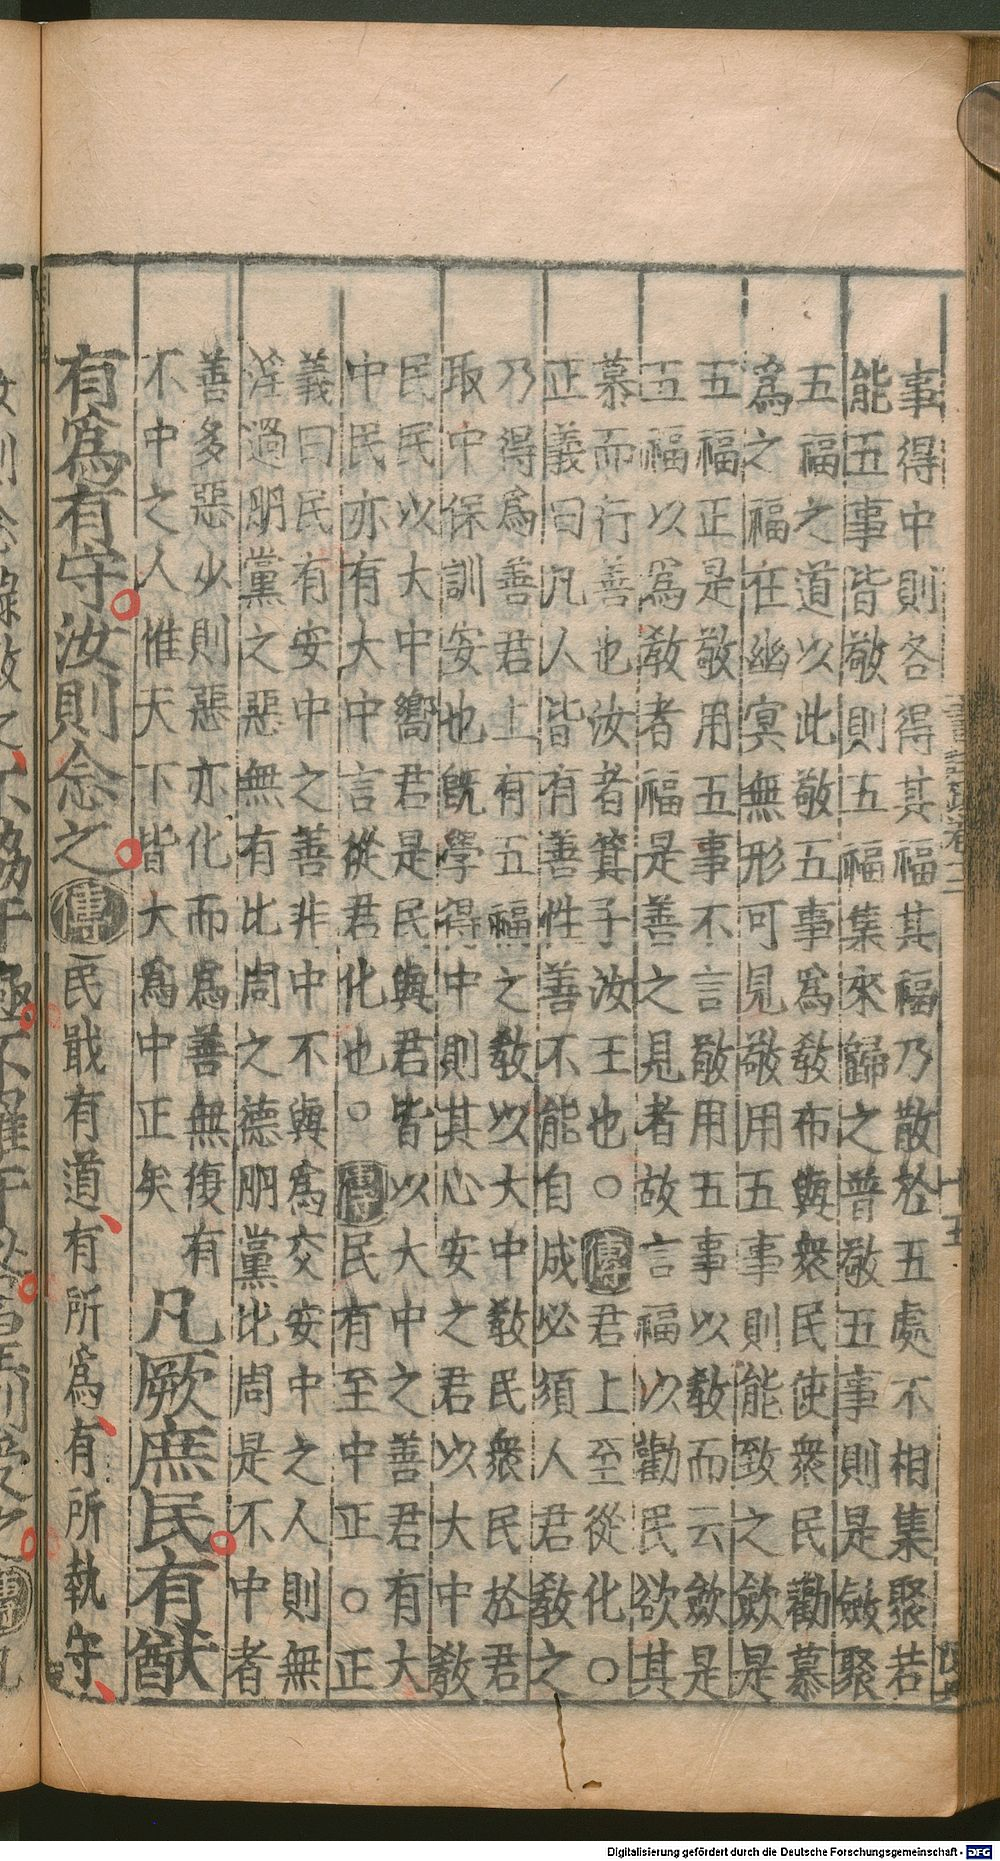 事得中則各得其福其福乃散於五處不相集聚若
能五事皆敬則五福集來歸之普敬五事則是斂聚
五福之道以此敬五事爲敎布與衆民使衆民勸慕
爲之福在幽冥無形可見敬用五事則能致之斂是
五福正是敬用五事不言敬用五事以敎而云斂是
五福以爲敎者福是善之見者故言福以勸民欲其
慕而行善也汝者箕子汝王也○傳君上至從化○
正義曰凡人皆有善性善不能自成必須人君敎之
乃得爲善君上有五福之敎以大中敎民衆民於君
取中保訓安也旣學得中則其心安之君以大中敎
民民以大中嚮君是民與君皆以大中之善君有大
中民亦有大中言從君化也○傳民有至中正○正
義曰民有安中之善非中不與爲交安中之人則無
淫過朋黨之惡無有比周之德朋黨比周是不中者
善多惡少則惡亦化而爲善無復有
不中之人惟天下皆大爲中正矣
凡厥庶民有猷
有爲有守汝則念之傳民戢有道有所爲有所執守
DFG
Digitalisierung gefördert durch die Deutsche Forschungsgemeinschaft -